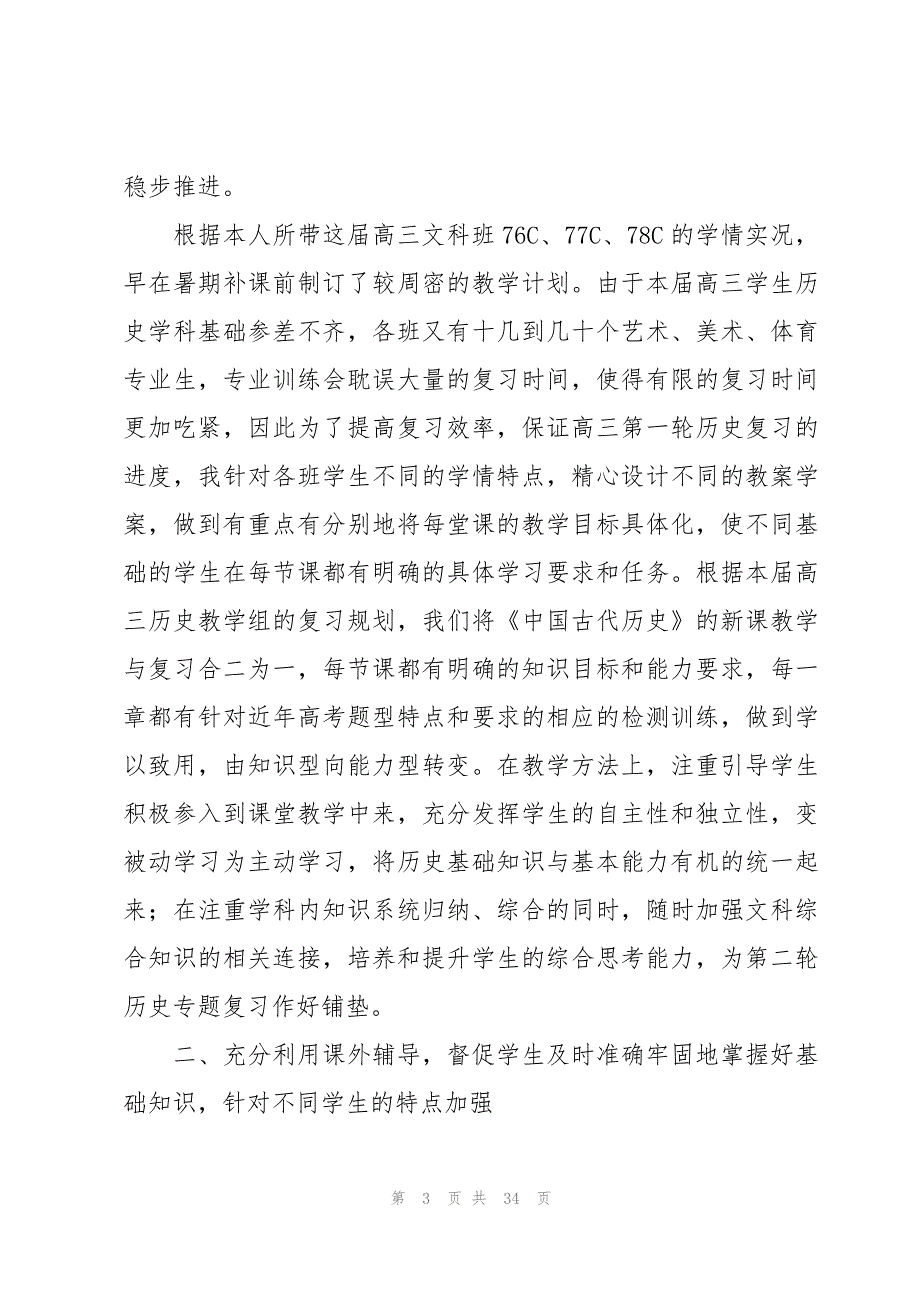 稳步推进。
根据本人所带这届高三文科班 76C、77C、78C 的学情实况，
早在暑期补课前制订了较周密的教学计划。由于本届高三学生历
史学科基础参差不齐，各班又有十几到几十个艺术、美术、体育
专业生，专业训练会耽误大量的复习时间，使得有限的复习时间
更加吃紧，因此为了提高复习效率，保证高三第一轮历史复习的
进度，我针对各班学生不同的学情特点，精心设计不同的教案学
案，做到有重点有分别地将每堂课的教学目标具体化，使不同基
础的学生在每节课都有明确的具体学习要求和任务。根据本届高
三历史教学组的复习规划，我们将《中国古代历史》的新课教学
与复习合二为一，每节课都有明确的知识目标和能力要求，每一
章都有针对近年高考题型特点和要求的相应的检测训练，做到学
以致用，由知识型向能力型转变。在教学方法上，注重引导学生
积极参入到课堂教学中来，充分发挥学生的自主性和独立性，变
被动学习为主动学习，将历史基础知识与基本能力有机的统一起
来；在注重学科内知识系统归纳、综合的同时，随时加强文科综
合知识的相关连接，培养和提升学生的综合思考能力，为第二轮
历史专题复习作好铺垫。
二、充分利用课外辅导，督促学生及时准确牢固地掌握好基
础知识，针对不同学生的特点加强
第 3 页 共 34 页